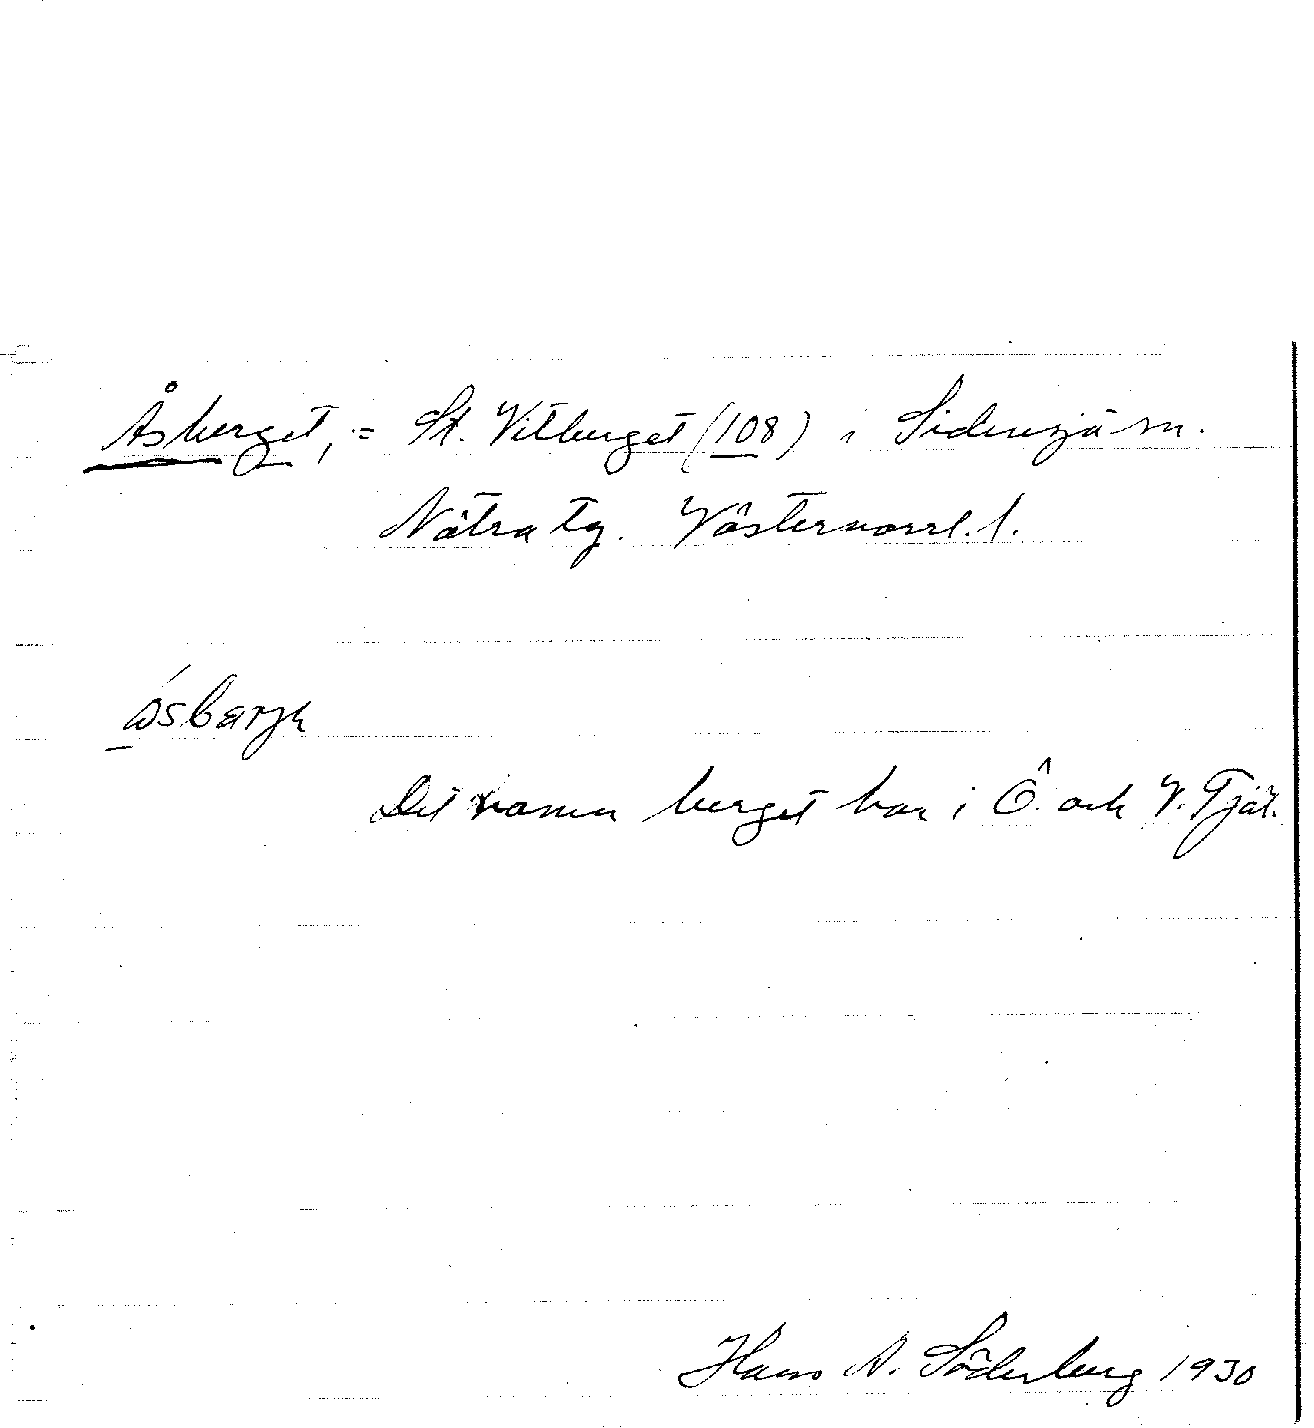 Åsberget, = St. Vitberget (108) i Sidensjö sn.
Nätra tg. Västernorrl. l.
åsbærjɛ
Det namn berget har i Ö. och V. Tjäl.
Hans A. Söderberg 1930